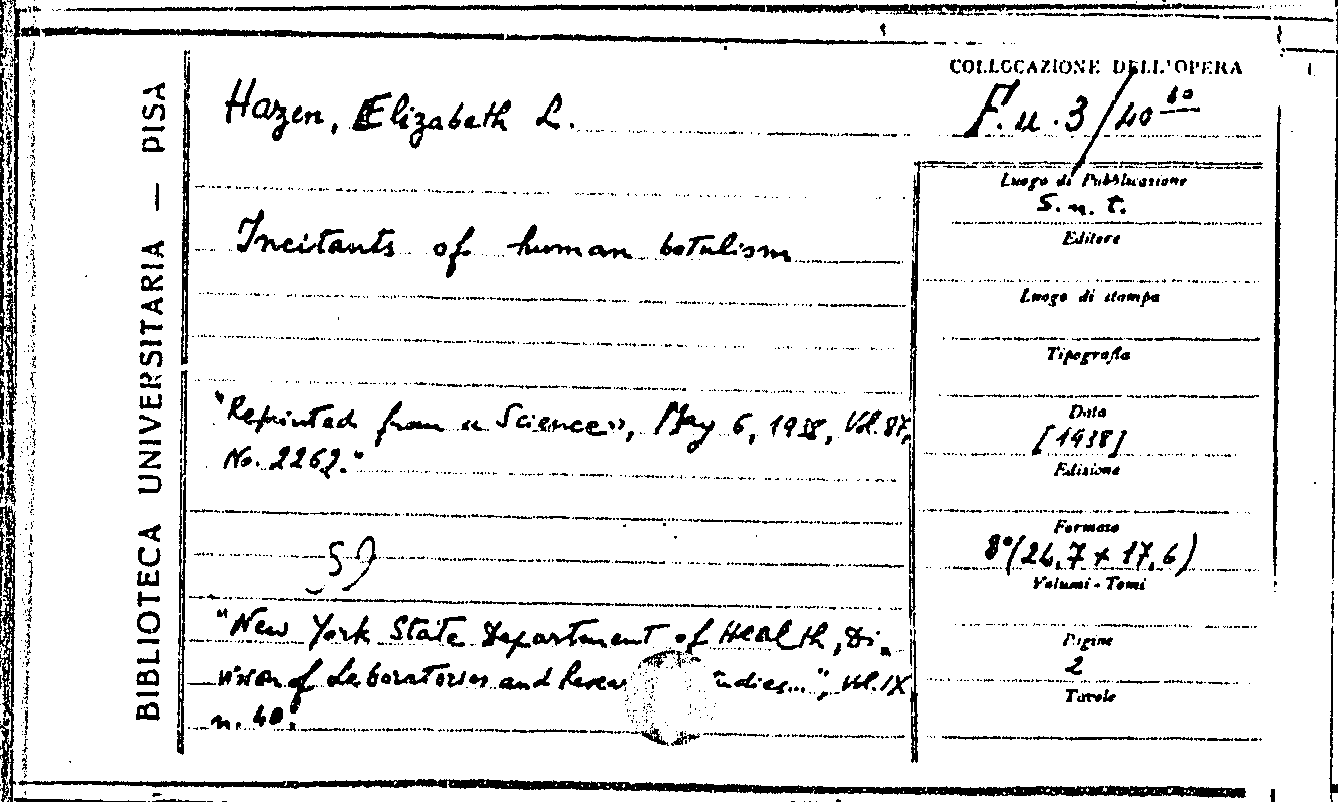 BIBLIOTECA UNIVERSITARIA — PISA
COLLOCAZIONE DELL'OPERA
Hazen, Elizabeth L.
F.u.3/40
Incitants of human botulism
"Reprinted from «Science», May 6, 1938, Vol. 87,
No. 2262."
"New York State Department of Health, Di-
vision of Laboratories and tudies...", Vol. IX
n. 40.
Luogo di Pubblicazione
S.n.t.
Editore
Luogo di stampa
Tipografia
Data
[1938]
Edizione
Formato
8°(24,7 x 17,6)
Volumi - Tomi
Pagine
2
Tavole